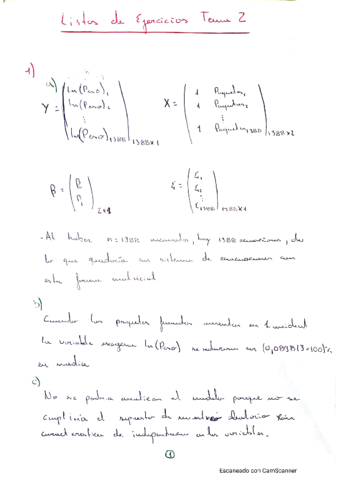 Listas de Ejercicios Tema 2
1)
a)
Y = ( ln(Peso)₁ ln(Peso)₂ ⋮ ln(Peso)₁₃₈₈ )₁₃₈₈ₓ₁ X = ( 1 Paquetes₁ 1 Paquetes₂ ⋮ 1 Paquetes₁₃₈₈ )₁₃₈₈ₓ₂
β = ( β₀ β₁ )₂ₓ₁ ξ = ( ξ₁ ξ₂ ⋮ ξ₁₃₈₈ )₁₃₈₈ₓ₁
. Al haber n = 1388 hay 1388 ecuaciones, de
lo que quedaría un sistema de ecuaciones con
esta forma matricial
b)
Cuando los paquetes fumados aumentan en 1 unidad
la variable ln(Peso) se reduce en (0,089813·100)%
en media
c)
No se podría analizar el modelo porque no se
cumpliría el supuesto de aleatoria
de independencia en las variables.
1
Escaneado con CamScanner